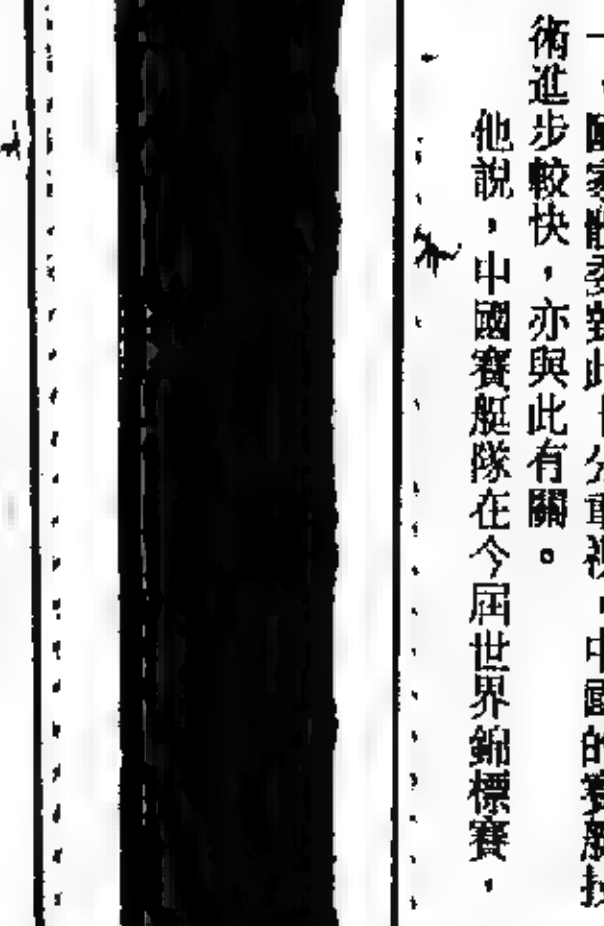 一，國家體委對此十分重視，中國的賽艇技
術進步較快，亦與此有關。
他說，中國賽艇隊在今屆世界錦標賽，